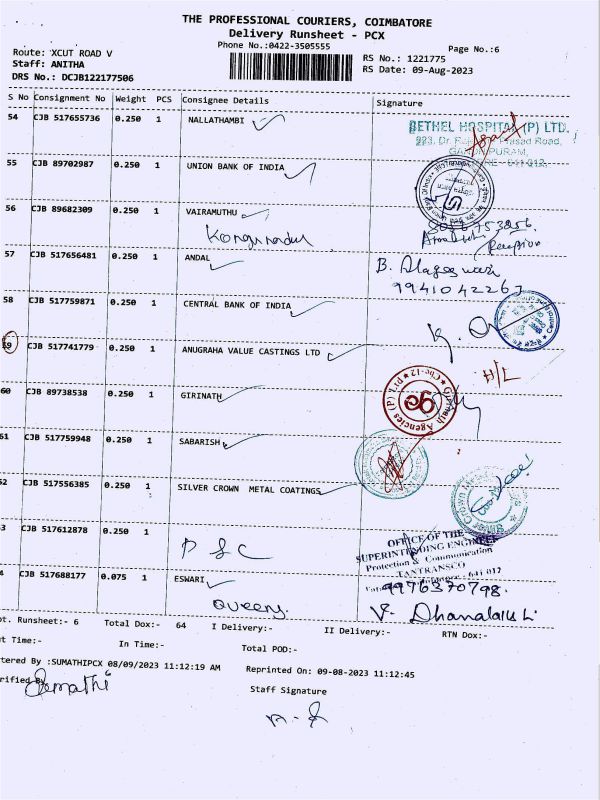 THE PROFESSIONAL COURIERS, COIMBATORE
Delivery Runsheet - PCX
Phone No.:0422-3505555
Page No.:6
Route: XCUT ROAD V
Staff: ANITHA
DRS No.: DCJB122177506
RS No.: 1221775
RS Date: 09-Aug-2023
S No Consignment No Weight PCS Consignee Details Signature
54 CJB 517655736 0.250 1 NALLATHAMBI
BETHEL HOSPITAL (P) LTD.
55 CJB 89702987 0.250 1 UNION BANK OF INDIA
56 CJB 89682309 0.250 1 VAIRAMUTHU
Kongunadu
Reception
57 CJB 517656481 0.250 1 ANDAL
B. Alageswari
9941042267
58 CJB 517759871 0.250 1 CENTRAL BANK OF INDIA
59 CJB 517741779 0.250 1 ANUGRAHA VALUE CASTINGS LTD
60 CJB 89738538 0.250 1 GIRINATH
Girinath Agencies (P) Ltd * Cbe-12 *
61 CJB 517759948 0.250 1 SABARISH
52 CJB 517556385 1 0.250 SILVER CROWN METAL COATINGS
3 CJB 517612878 0.250 1
PSC
OFFICE OF THE
SUPERINTENDING ENGINEER
Protection & Communication
TANTRANSCO
4 CJB 517688177 0.075 1 ESWARI
Queens.
9976370798.
V. Dhanalakshi
ot. Runsheet:- 6 Total Dox:- 64 I Delivery:- II Delivery:- RTN Dox:-
ut Time:- In Time:- Total POD:-
tered By :SUMATHIPCX 08/09/2023 11:12:19 AM Reprinted On: 09-08-2023 11:12:45
rified By
Staff Signature